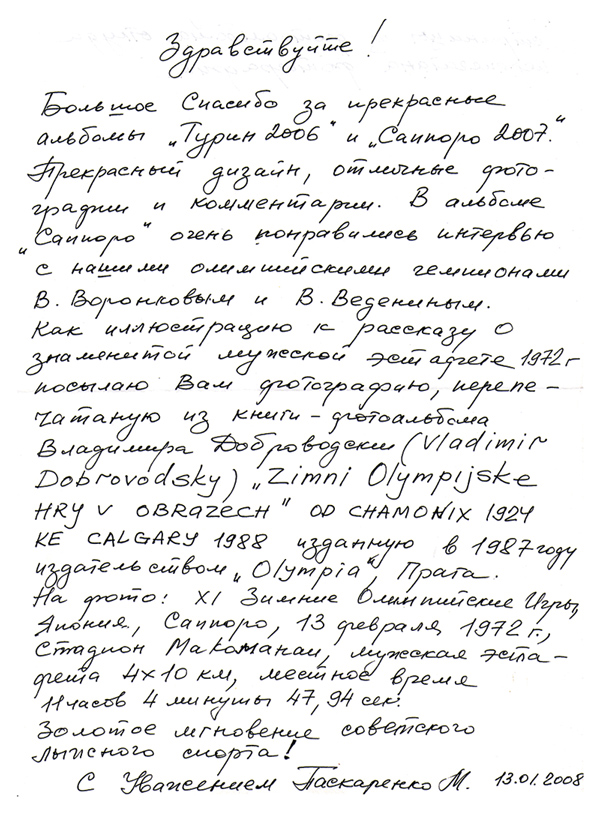 Здравствуйте!
Большое Спасибо за прекрасные
альбомы „Турин 2006“ и „Саппоро 2007.“
Прекрасный дизайн, отличные фото-
графии и комментарии. В альбоме
„Саппоро“ очень понравились интервью
с нашими олимпийскими чемпионами
В. Воронковым и В. Ведениным.
Как иллюстрацию к рассказу о
знаменитой мужской эстафете 1972 г
посылаю Вам фотографию, перепе-
чатаную из книги - фотоальбома
Владимира Доброводски (Vladimir
Dobrovodsky) „Zimni Olympijske
HRY V OBRAZECH" OD CHAMONIX 1924
KE CALGARY 1988 изданную в 1987 году
издательством „Olympia“, Прага.
На фото: XI Зимние Олимпийские Игры,
Япония, Саппоро, 13 февраля 1972 г.,
Стадион Макоманаи, мужская эста-
фета 4х10 км, местное время
11 часов 4 минуты 47,94 сек.
Золотое мгновение советского
лыжного спорта!
С Уважением Паскаренко М. 13.01.2008